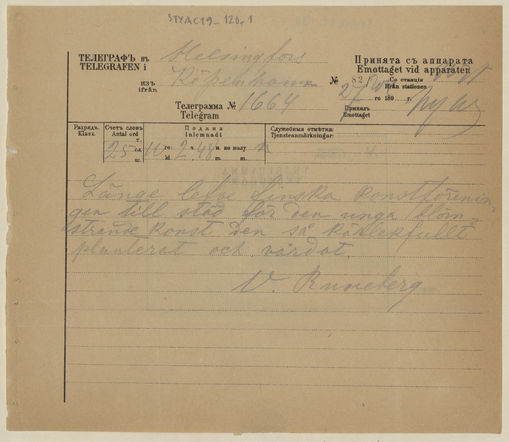 STYAC19_120,1
ТЕЛЕГРАФЪ въ
TELEGRAFEN i
Helsingfors
Принята съ аппарата
Emottaget vid apparaten
изъ
ifrån
Köpenhamn
№ 82
Со станціи
från stationen
27
го 189
Телеграмма №
Telegram
1664
Принялъ
Emottaget
Разрядъ.
Klass.
Счетъ словъ
Antal ord
Подана
Inlemnadt
Служебныя отмѣтки:
Tjensteanmärkningar:
25
го
id.
2
ч.
48
м. по полу
m.
Länge lefve Finska konstförenin-
gen till stöd för den unga blom-
strande konst den så kärleksfullt
planterat och vårdat.
W. Runeberg